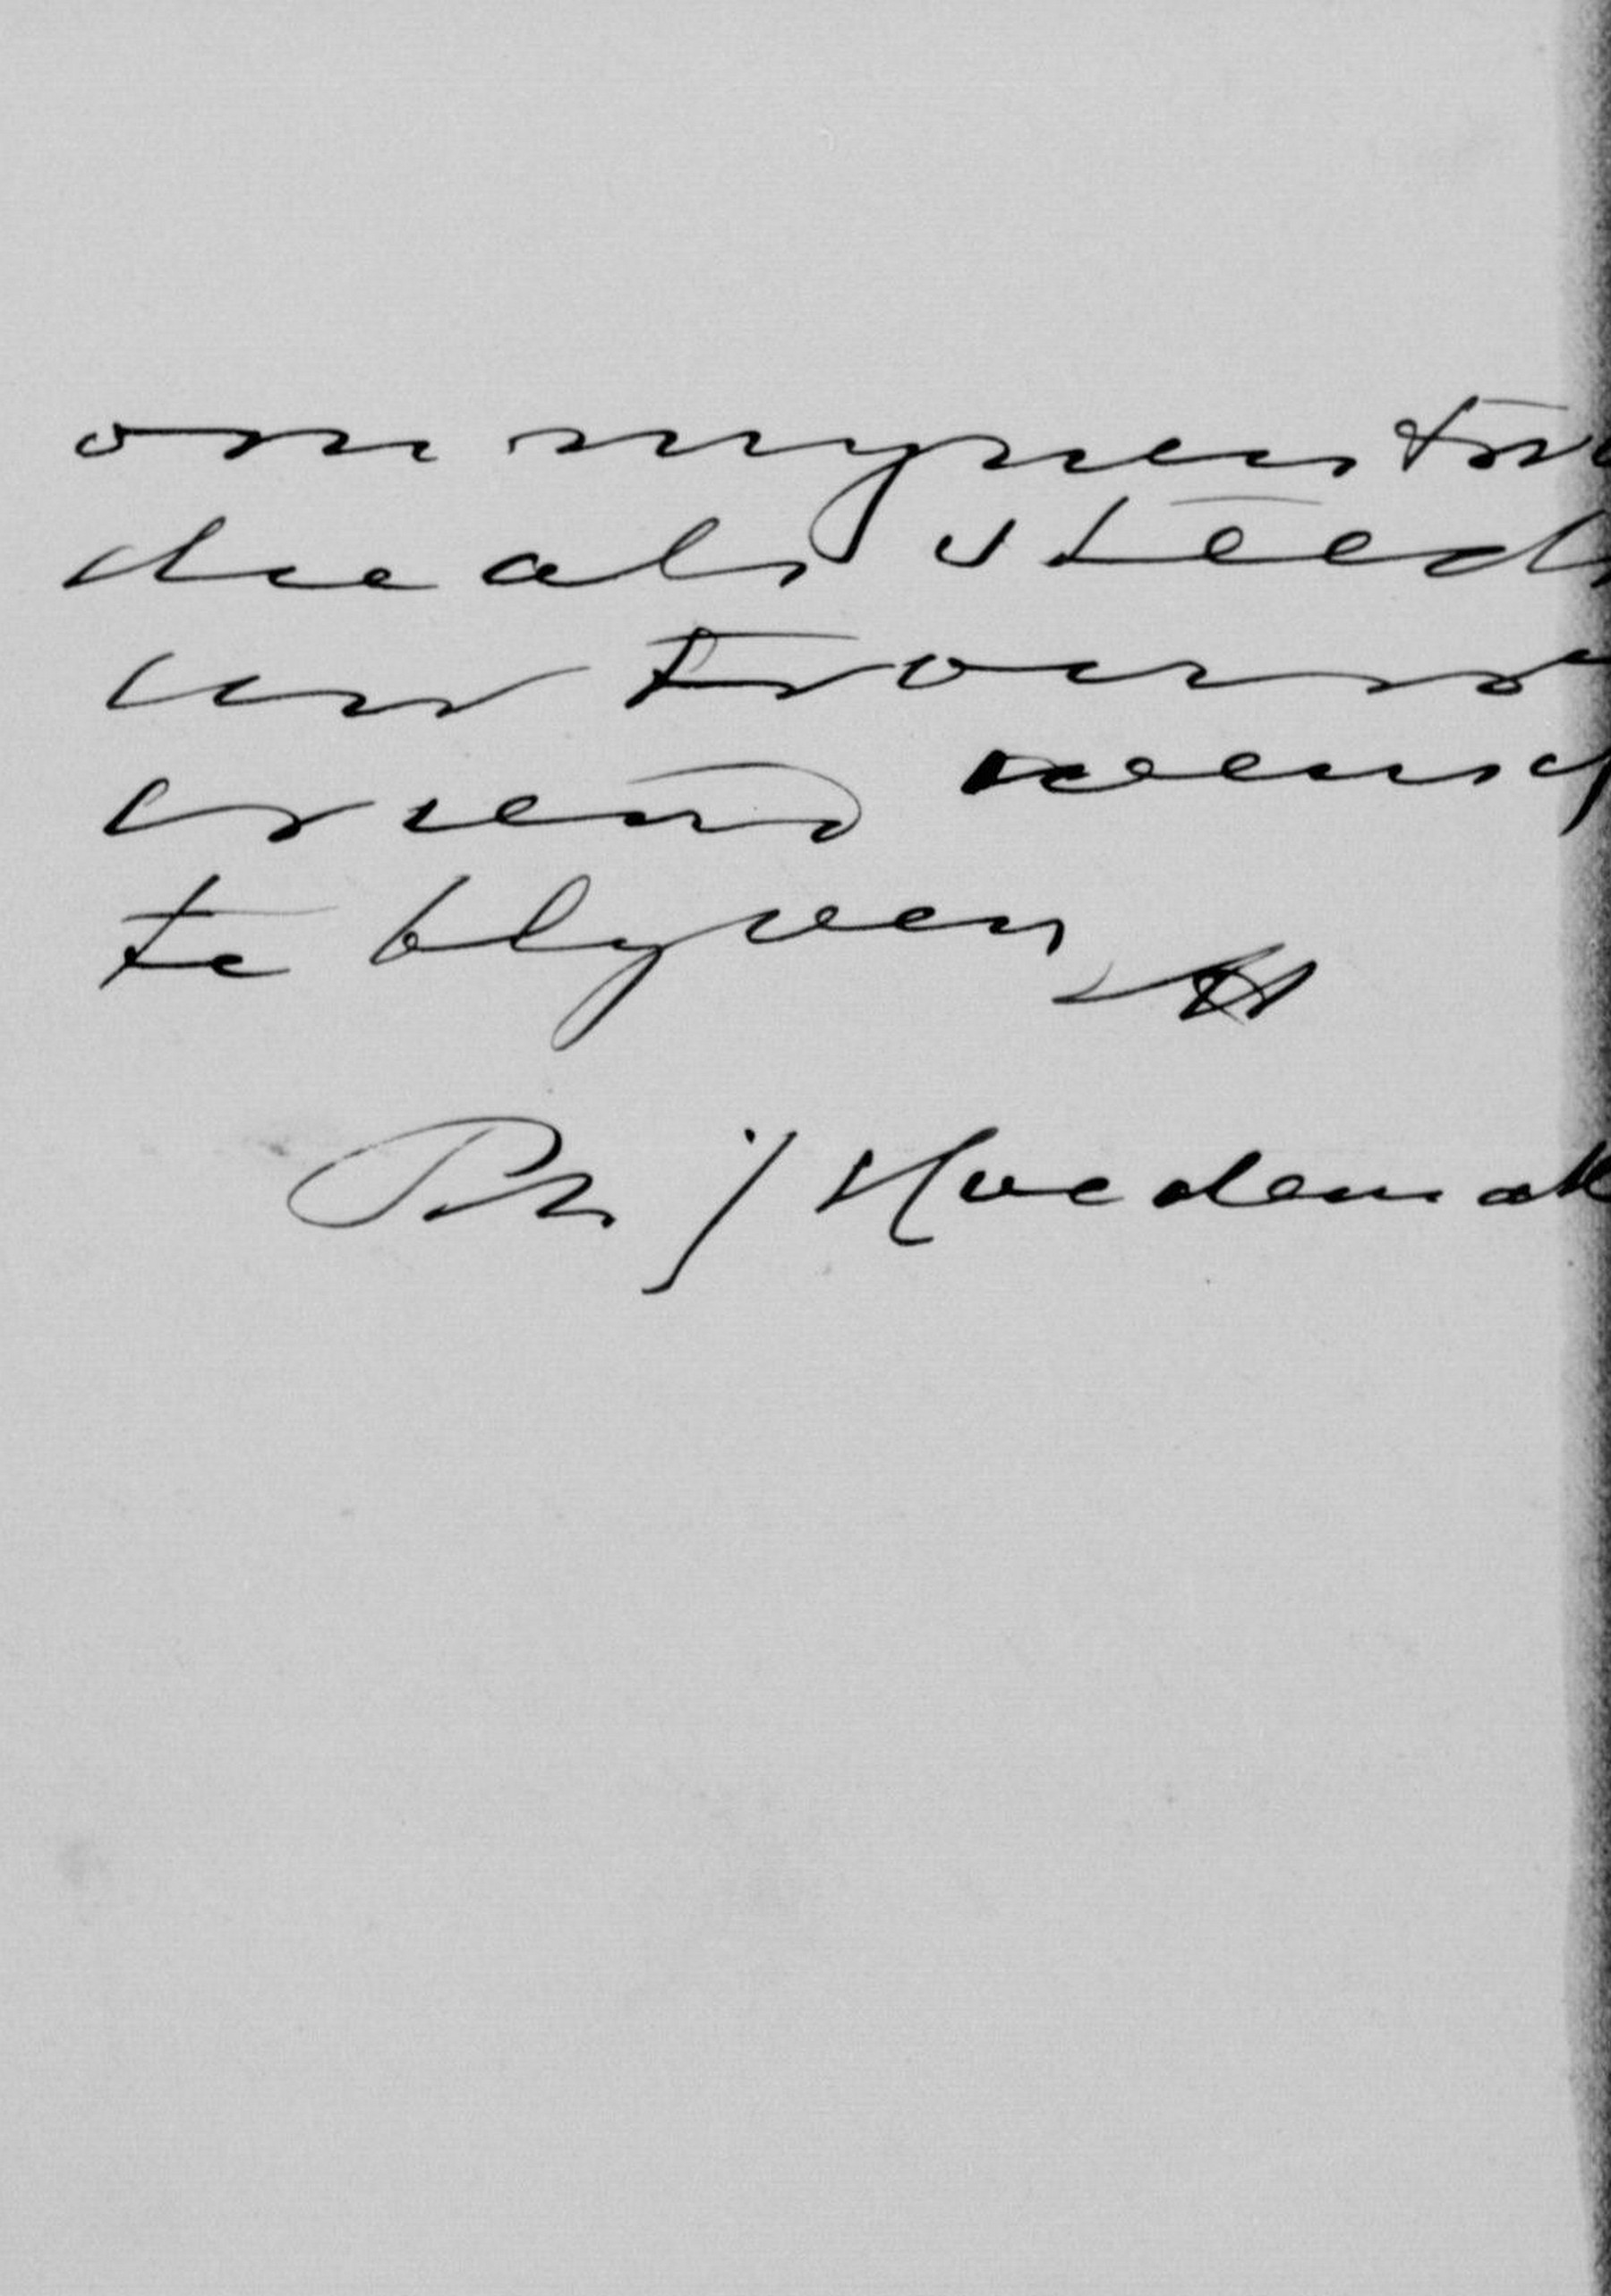 om mynen
die als steeds
uw trouwe
vriend wensch
te blyven
Ph j Hoedemak